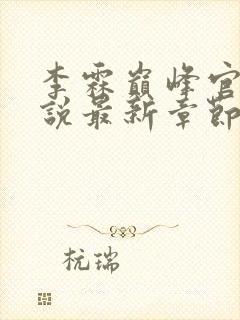 李霖巔峰官
說最新章節
杭瑞